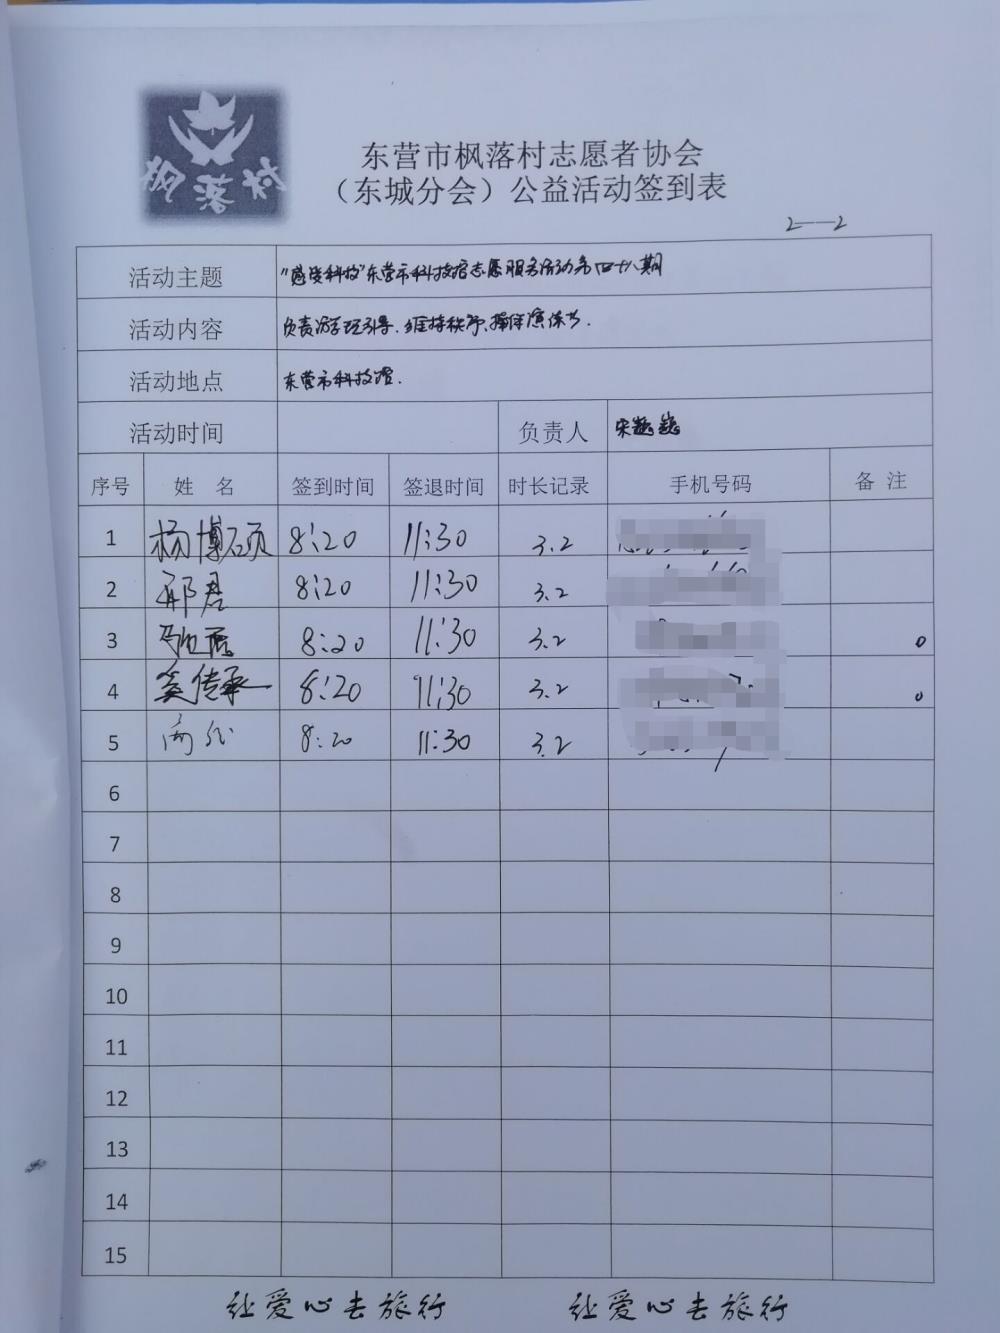 枫落村
东营市枫落村志愿者协会
（东城分会）公益活动签到表
2——2
活动主题 "感受科技"东营市科技馆志愿服务活动第四十八期
活动内容 负责游玩引导、维持秩序、操作演练等.
活动地点 东营市科技馆.
活动时间 负责人 宋
序号 姓 名 签到时间 签退时间 时长记录 手机号码 备 注
1 杨博硕 8:20 11:30 3.2
2 邴君 8:20 11:30 3.2
3 8:20 11:30 3.2
4 传承 8:20 11:30 3.2
5 8:20 11:30 3.2
6
7
8
9
10
11
12
13
14
15
让爱心去旅行 让爱心去旅行